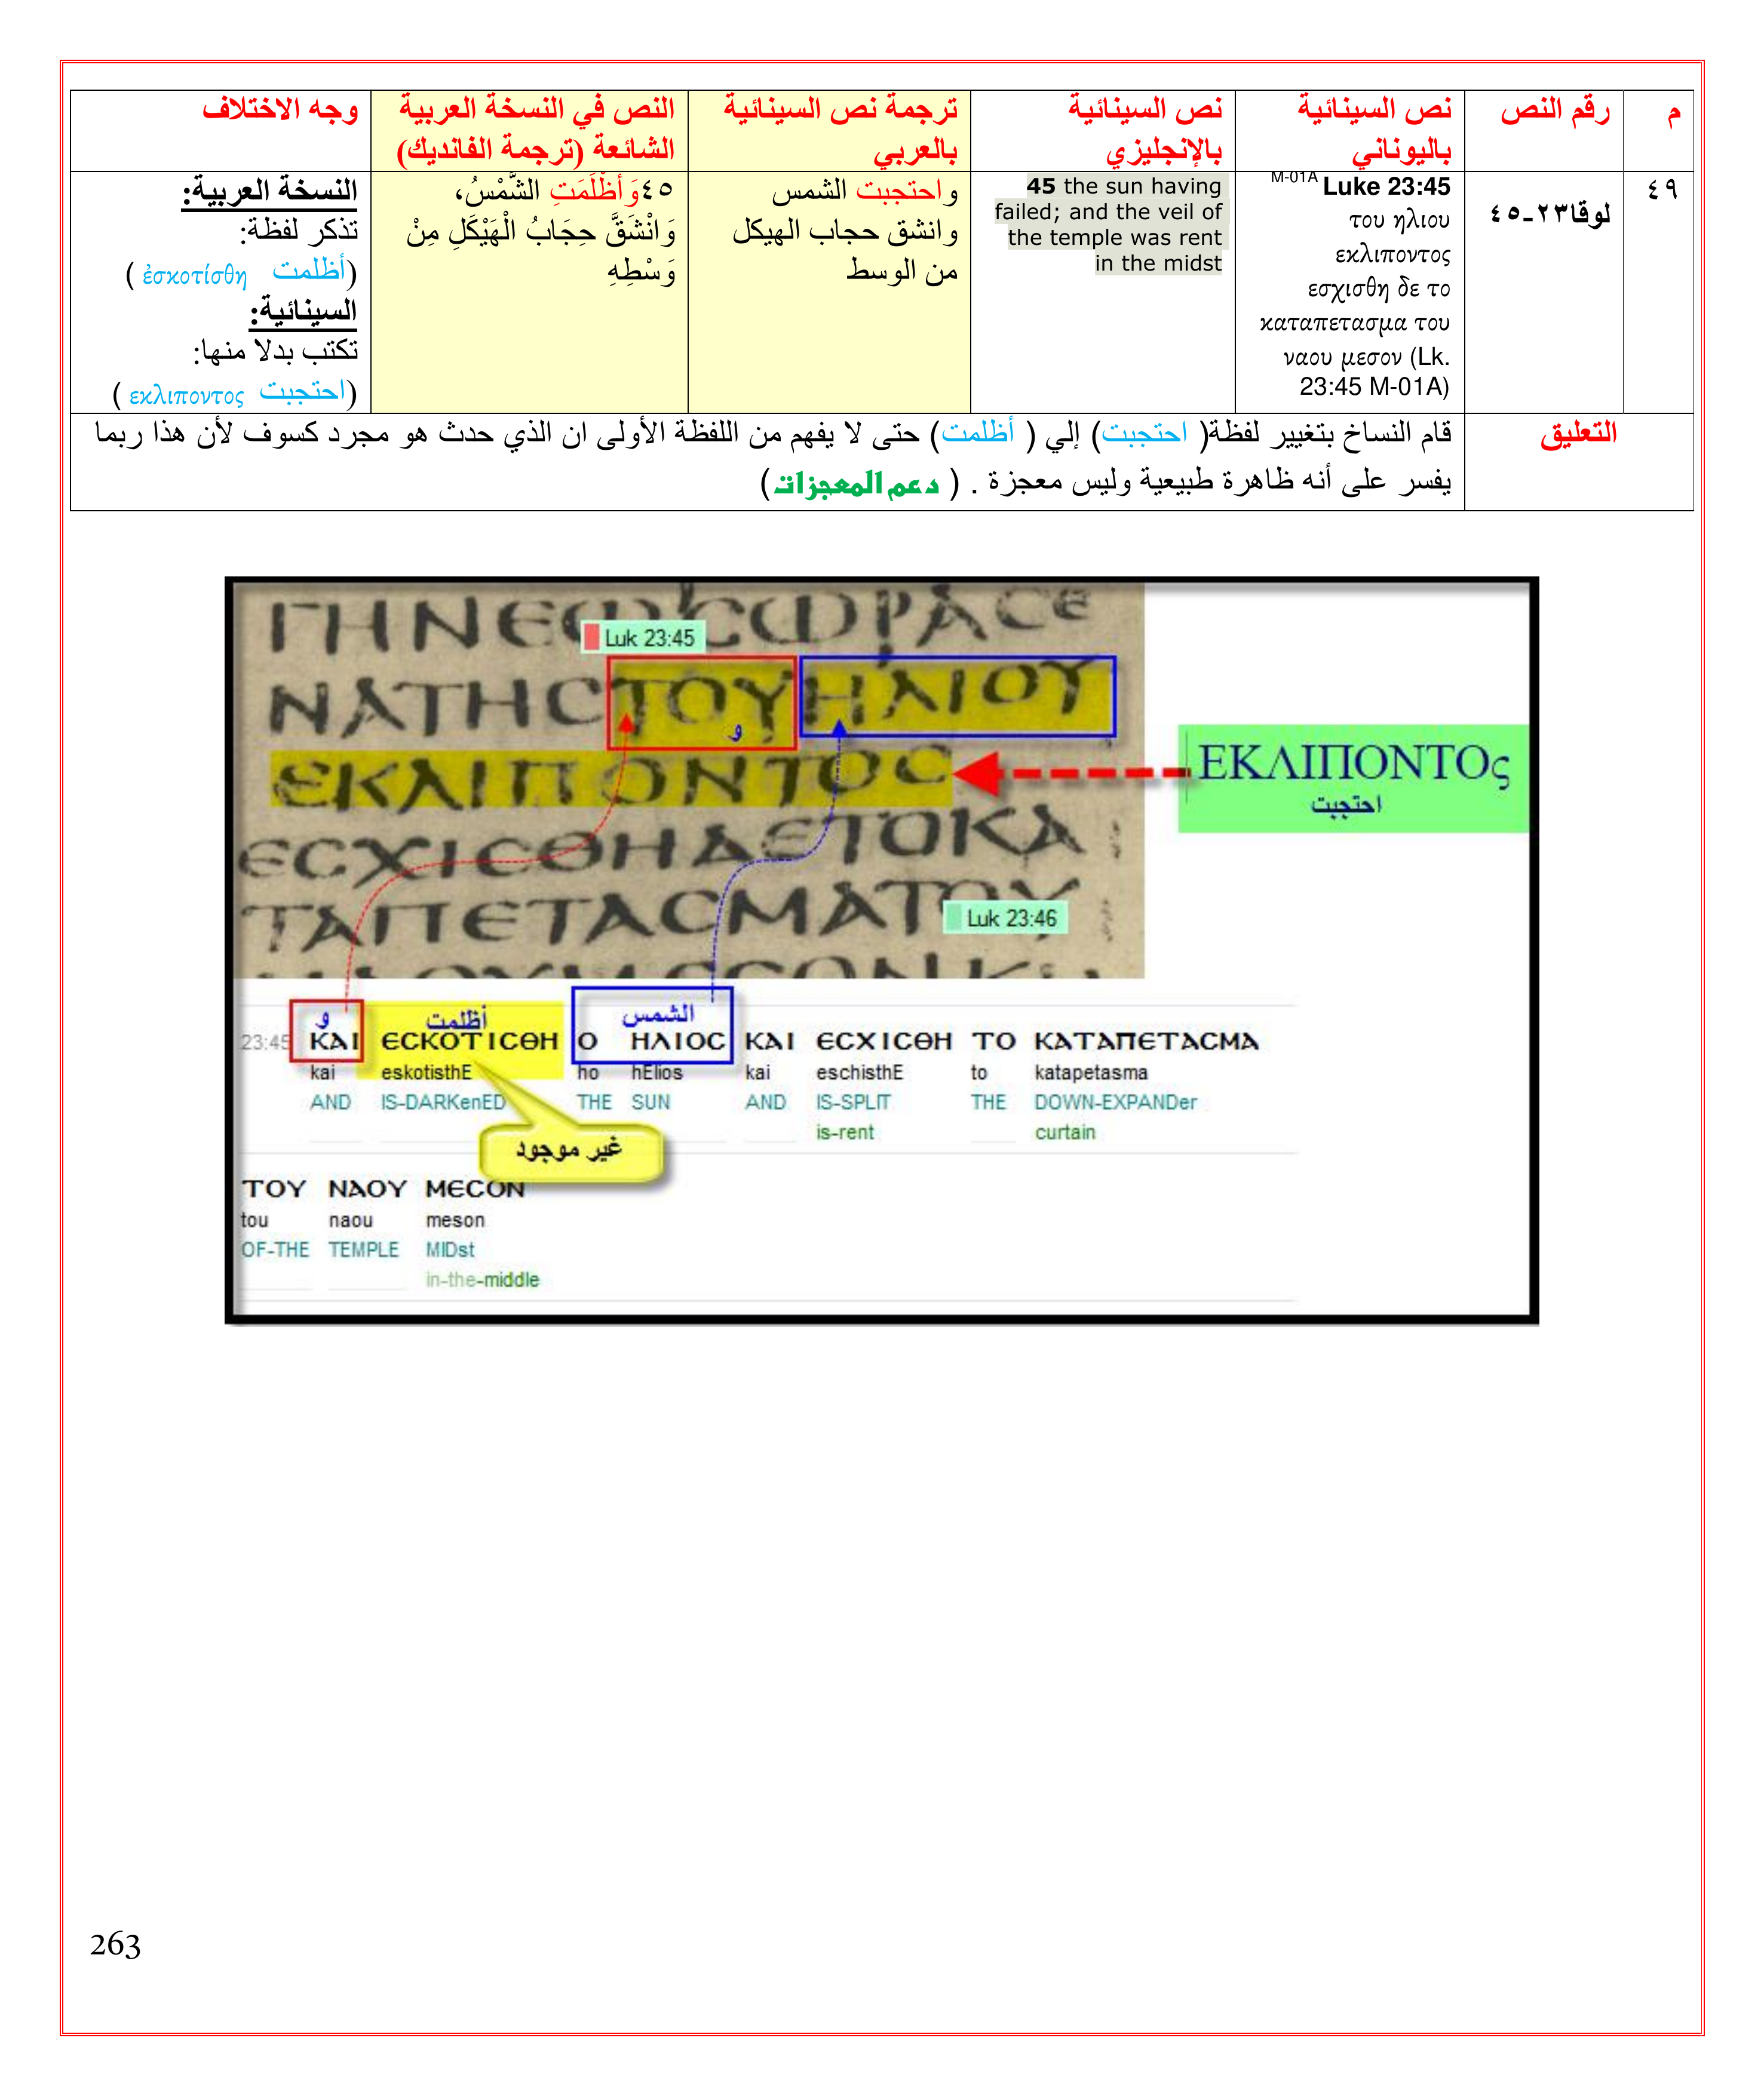 م
رقم النص
نص السينائية
باليوناني
نص السينائية
بالإنجليزي
ترجمة نص السينائية
بالعربي
النص في النسخة العربية
الشائعة (ترجمة الفانديك)
وجه الاختلاف
٤٩
لوقا٢٣-٤٥
M-01A Luke 23:45
του ηλιου
εκλιποντος
εσχισθη δε το
καταπετασμα του
ναου μεσον (Lk.
23:45 M-01A)
45 the sun having
failed; and the veil of
the temple was rent
in the midst
واحتجبت الشمس
وانشق حجاب الهيكل
من الوسط
٤٥وَأَظْلَمَتِ الشَّمْسُ،
وَانْشَقَّ حِجَابُ الْهَيْكَلِ مِنْ
وَسْطِهِ
النسخة العربية:
تذكر لفظة:
(أظلمت ἐσκοτίσθη )
السينائية:
تكتب بدلا منها:
(احتجبت εκλιποντος )
التعليق
قام النساخ بتغيير لفظة( احتجبت) إلي ( أظلمت) حتى لا يفهم من اللفظة الأولى ان الذي حدث هو مجرد كسوف لأن هذا ربما
يفسر على أنه ظاهرة طبيعية وليس معجزة . ( دعم المعجزات)
ΓΗΝΕⲰϹⲰΡΑϹΕ
Luk 23:45
ΝΑΤΗϹΤΟΥΗΛΙΟΥ
و
ΕΚΛΙΠΟΝΤΟϹ
ΕΚΛΙΠΟΝΤΟς
احتجبت
ΕϹΧΙϹΘΗΔΕΤΟΚΑ
ΤΑΠΕΤΑϹΜΑΤΟΥ
Luk 23:46
و أظلمت الشمس
23:45 ΚΑΙ ΕϹΚΟΤΙϹΘΗ Ο ΗΛΙΟϹ ΚΑΙ ΕϹΧΙϹΘΗ ΤΟ ΚΑΤΑΠΕΤΑϹΜΑ
kai eskotisthE ho hElios kai eschisthE to katapetasma
AND IS-DARKenED THE SUN AND IS-SPLIT THE DOWN-EXPANDer
is-rent curtain
غير موجود
ΤΟΥ ΝΑΟΥ ΜΕϹΟΝ
tou naou meson
OF-THE TEMPLE MIDst
in-the-middle
263